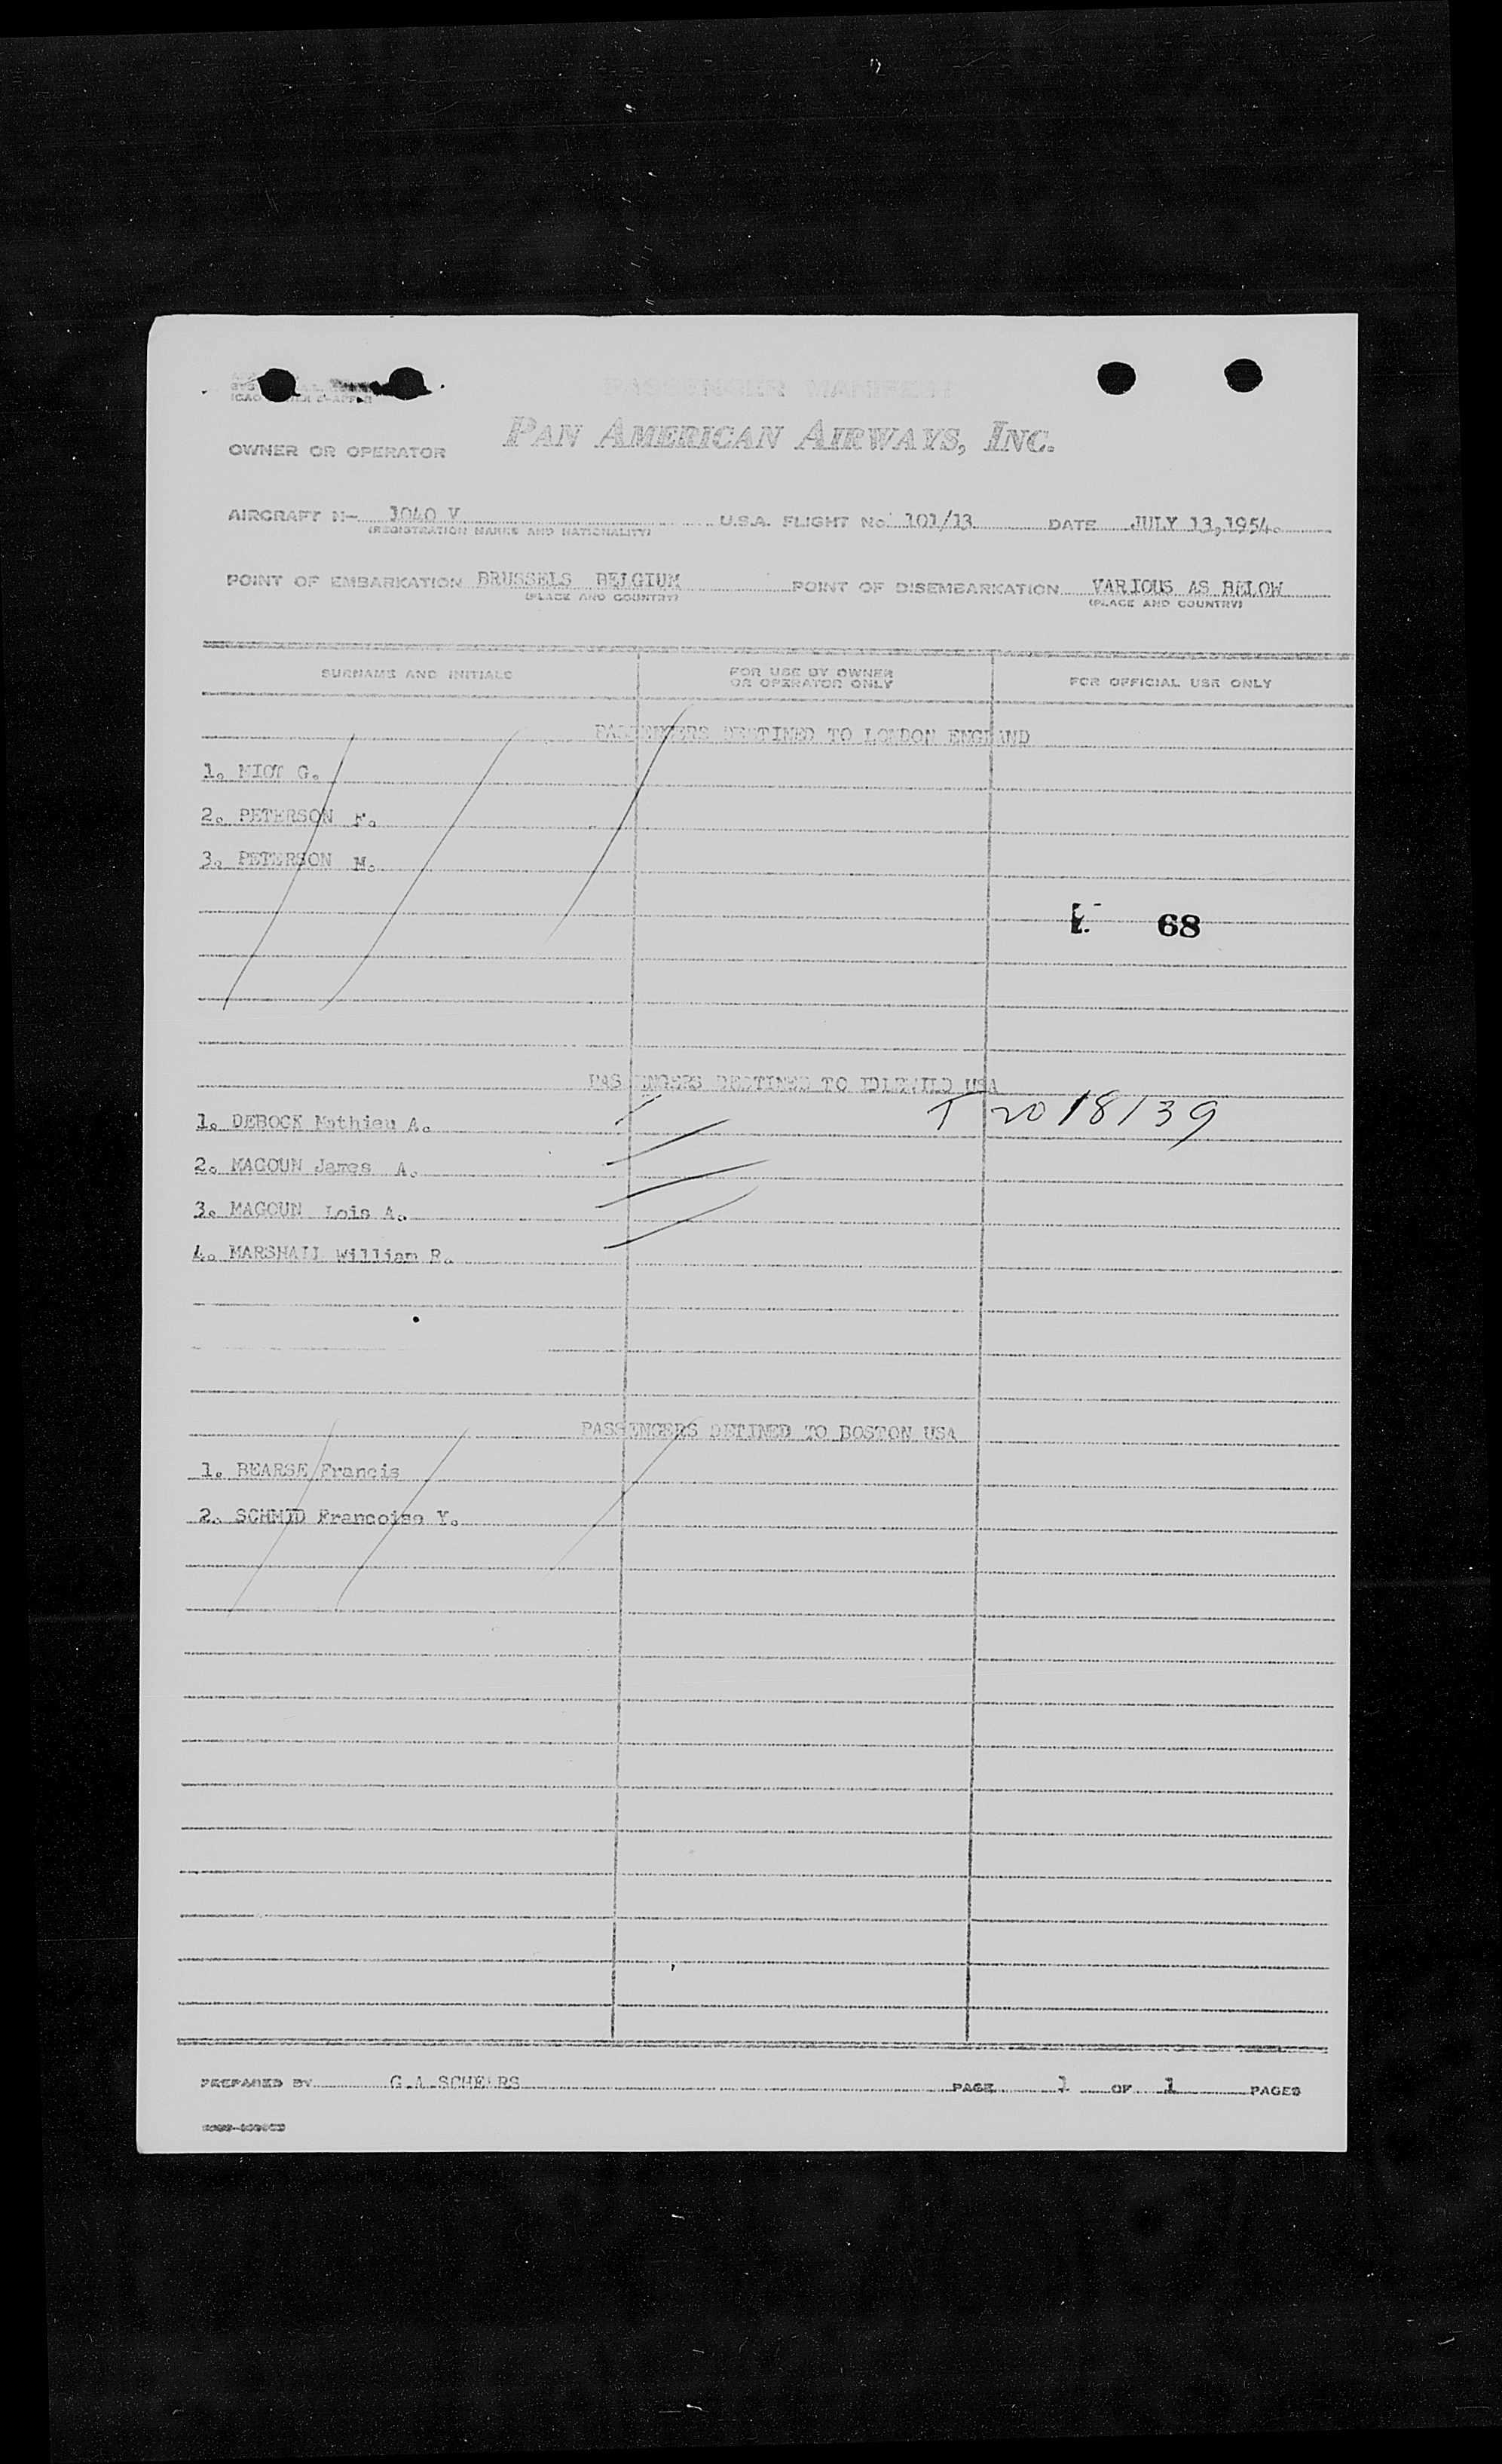 PASSENGER MANIFEST
PAN AMERICAN AIRWAYS, INC.
OWNER OR OPERATOR
AIRCRAFT N- 1040 V U.S.A. FLIGHT No. 101/13 DATE JULY 13,1954.
(REGISTRATION MARKS AND NATIONALITY)
POINT OF EMBARKATION BRUSSELS BELGIUM POINT OF DISEMBARKATION VARIOUS AS BELOW
(PLACE AND COUNTRY) (PLACE AND COUNTRY)
SURNAME AND INITIALS FOR USE BY OWNER OR OPERATOR ONLY FOR OFFICIAL USE ONLY
PASSENGERS DESTINED TO LONDON ENGLAND
1. MIOT G.
2. PETERSON F.
3. PETERSON M.
68
PASSENGERS DESTINED TO IDLEWILD USA
1. DEBOCK Mathieu A. T 2018139
2. MAGOUN James A.
3. MAGOUN Lois A.
4. MARSHALL William R.
PASSENGERS DETINED TO BOSTON USA
1. BEARSE Francis
2. SCHMID Francoise Y.
PREPARED BY G.A. PAGE 1 OF 1 PAGES